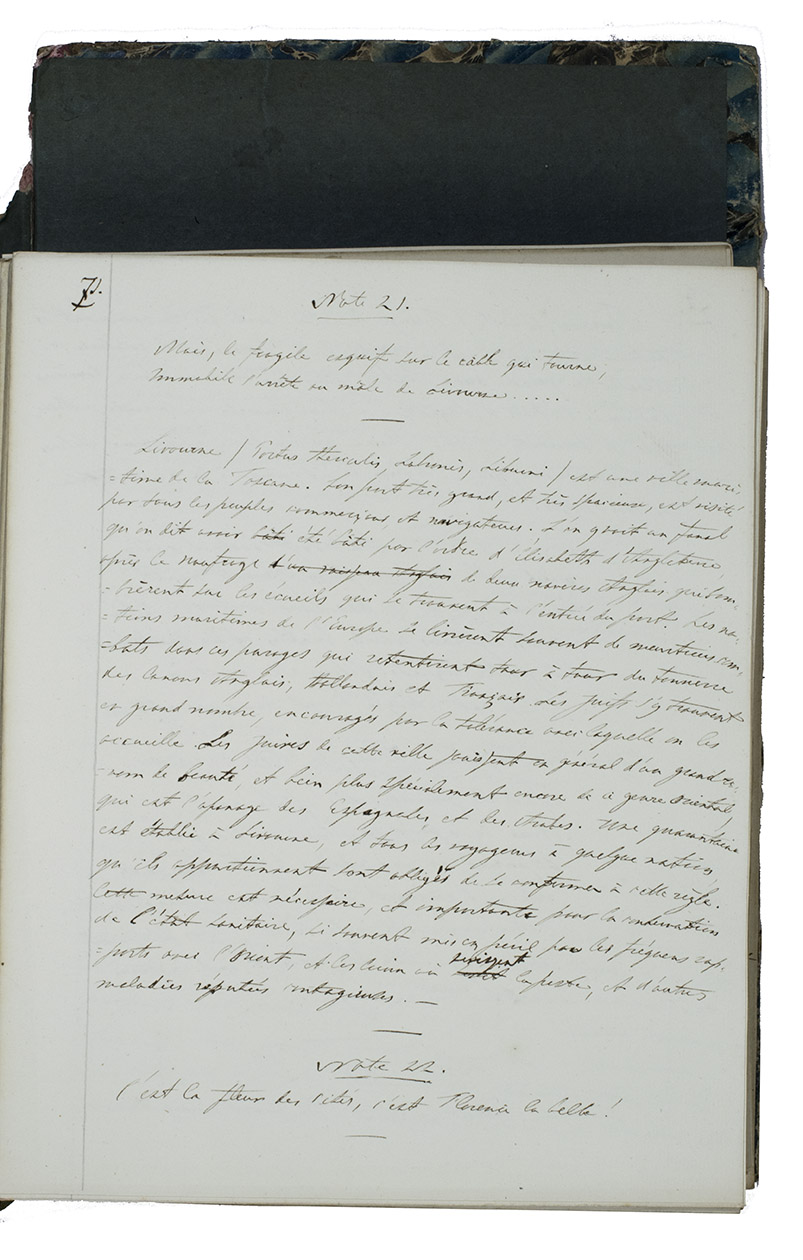 71.
Note 21.
Mais, le fragile esquif sur le câble qui tourne,
Immobile s'arrête au môle de Livourne.....
Livourne / Portus Herculis, Labronis, Liburni / est une ville mari-
=time de la Toscane. Son port très grand, et très spacieux, est visité
par tous les peuples commerçans et navigateurs. L'on y voit un fanal
qu'on dit avoir bâti été bâti par l'ordre d'Élisabeth d'Angleterre
après le naufrage d'un vaisseau Anglais de deux navires Anglais, qui som-
=brèrent sur les écueils qui se trouvent à l'entrée du port. Les na-
=tions maritimes de l'Europe se livrèrent souvent de meurtriers com-
=bats dans ces parages qui retentirent tour à tour du tonnerre
des canons Anglais, Hollandais et Français. Les juifs s'y trouvent
en grand nombre, encouragés par la tolérance avec laquelle on les
accueille. Les juives de cette ville jouissent en général d'un grand re-
=nom de beauté, et bien plus spécialement encore de ce genre oriental,
qui est l'apanage des Espagnoles, et des Arabes. Une quarantaine
est établie à Livourne, et tous les voyageurs à quelque nation
qu'ils appartiennent sont obligés de se conformer à cette règle.
Cette mesure est nécessaire, et importante pour la conservation
de l'état sanitaire, si souvent mis en péril par les fréquens rap-
=ports avec l'Orient, et les lieux où sévissent la peste, et d'autres
maladies réputées contagieuses. —
Note 22.
C'est la fleur des cités, c'est Florence la belle!